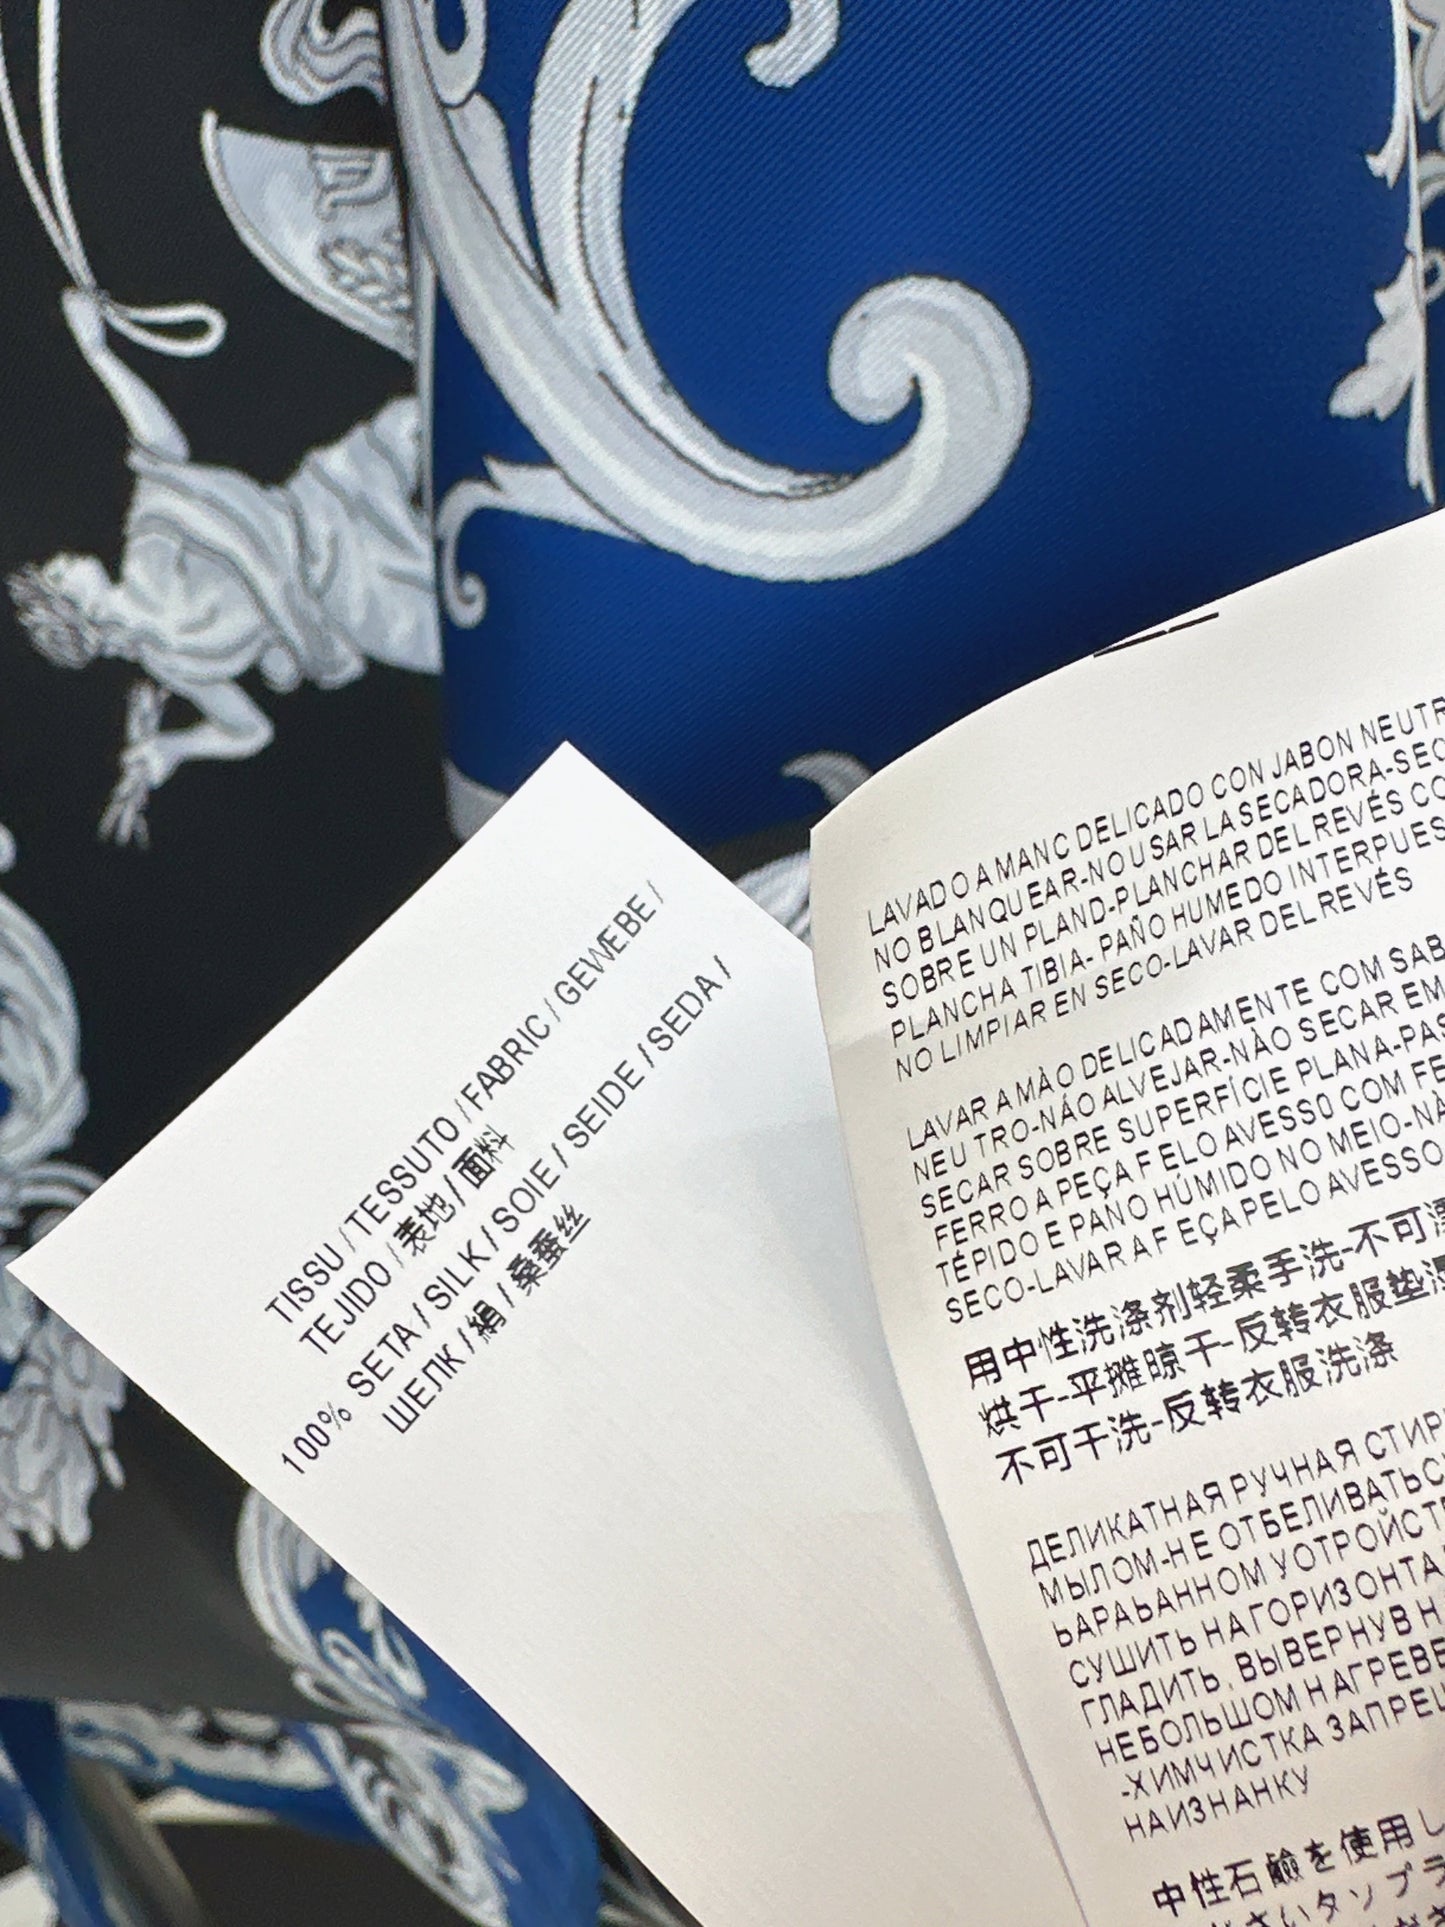 TISSU / TESSUTO / FABRIC / GEWEBE /
TEJIDO / 表地 / 面料
100% SETA / SILK / SOIE / SEIDE / SEDA /
ШЕЛК / 絹 / 桑蚕丝
LAVADO A MANC DELICADO CON JABON NEUTR
NO BLANQUEAR-NO USAR LA SECADORA-SEC
SOBRE UN PLAND-PLANCHAR DEL REVÉS CO
PLANCHA TIBIA- PAÑO HUMEDO INTERPUES
NO LIMPIAR EN SECO-LAVAR DEL REVÉS
LAVAR A MÀO DELICADAMENTE COM SAB
NEU TRO-NÁO ALVEJAR-NÀO SECAR EM
SECAR SOBRE SUPERFÍCIE PLANA-PAS
FERRO A PEÇA FELO AVESSO COM FE
TÉPIDO E PANO HÚMIDO NO MEIO-NÀ
SECO-LAVAR A F EÇA PELO AVESSO
用中性洗涤剂轻柔手洗-不可漂
烘干-平摊晾干-反转衣服垫湿
不可干洗-反转衣服洗涤
ДЕЛИКАТНАЯ РУЧНАЯ СТИР
МЫЛОМ-НЕ ОТБЕЛИВАТЬСУ
ЬАРАЬАННОМ УОТРОЙСТ
СУШИТЬ НА ГОРИЗОНТА
ГЛАДИТЬ, ВЫВЕРНУВ Н
НЕБОЛЬШОМ НАГРЕВЕ
-ХИМЧИСТКА ЗАПРЕЩ
НАИЗНАНКУ
中性石鹸を使用し
さいタンブラ